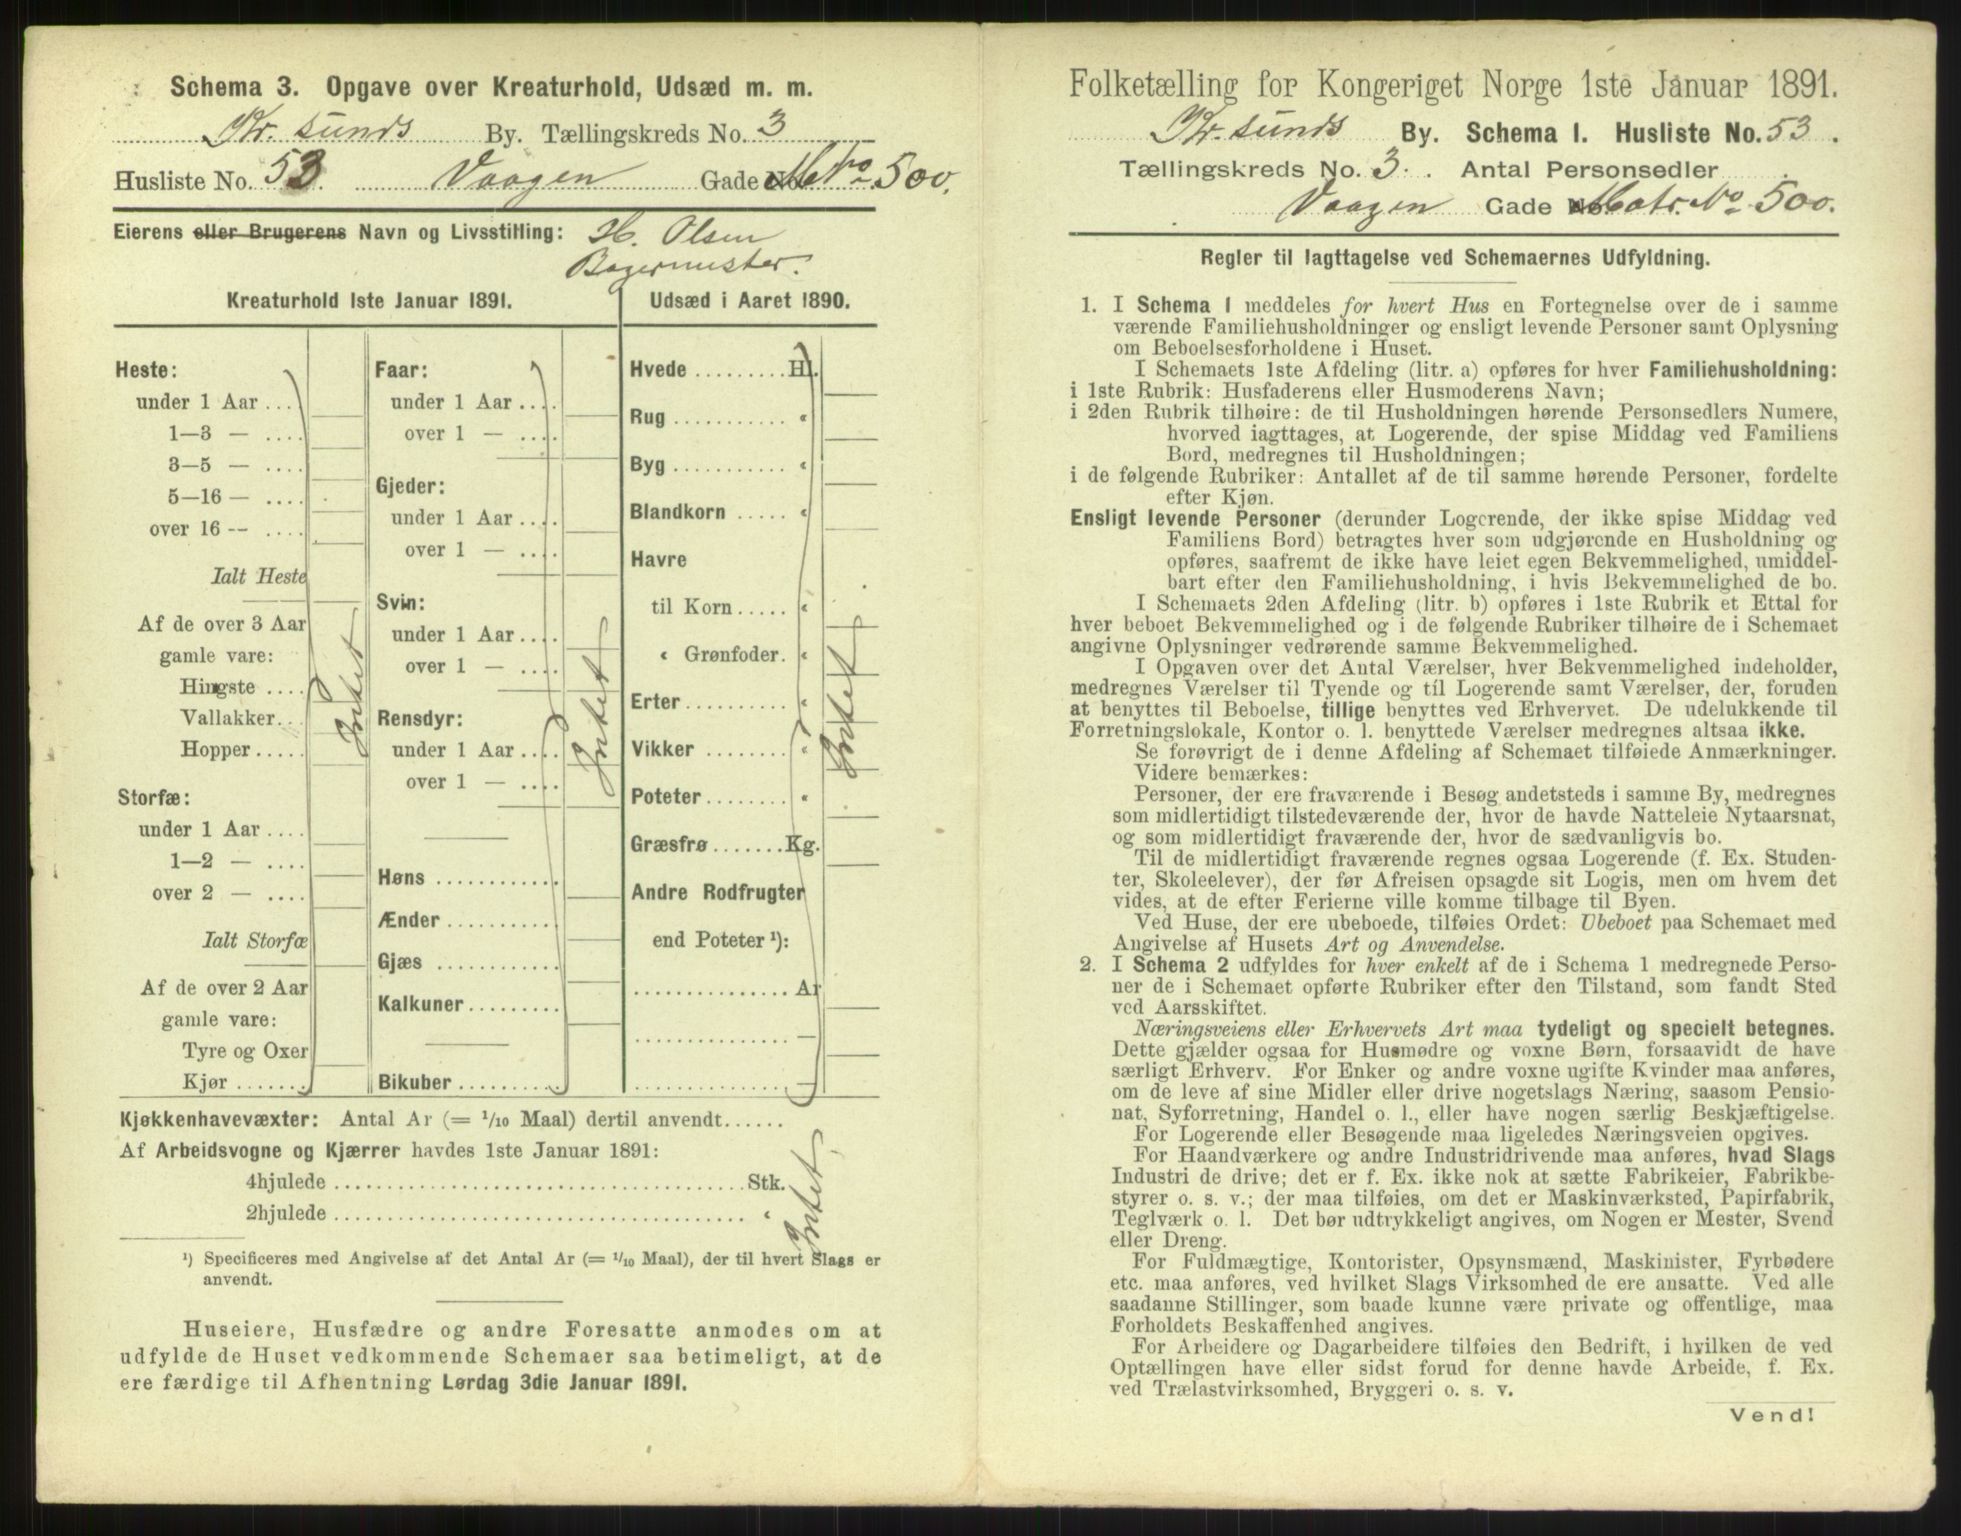 Schema 3. Opgave over Kreaturhold, Udsæd m. m.
Kr. sunds By. Tællingskreds No. 3
Husliste No. 53. Vaagen Gade No. M. No. 500.
Eierens eller Brugerens Navn og Livsstilling: H. Olsen
Bagermester.
Kreaturhold 1ste Januar 1891.
Heste:
under 1 Aar....
1—3 — ....
3—5 — ....
5—16 — ....
over 16 -- ....
Ialt Heste
Af de over 3 Aar
gamle vare:
Hingste ....
Vallakker...
Hopper .....
Storfæ:
under 1 Aar ....
1—2 — ....
over 2 — ....
Ialt Storfæ
Af de over 2 Aar
gamle vare:
Tyre og Oxer
Kjør .......
Intet
Faar:
under 1 Aar ....
over 1 — ....
Gjeder:
under 1 Aar ....
over 1 — ....
Svin:
under 1 Aar ....
over 1 — ....
Rensdyr:
under 1 Aar ....
over 1 — ....
Høns ............
Ænder ...........
Gjæs ............
Kalkuner.........
Bikuber ..........
Intet
Udsæd i Aaret 1890.
Hvede ......... Hl.
Rug ........... «
Byg ........... «
Blandkorn ..... «
Havre
til Korn ..... «
« Grønfoder. «
Erter .......... «
Vikker ........ «
Poteter ........ «
Græsfrø ....... Kg.
Andre Rodfrugter
end Poteter ¹):
............... Ar
............... —
............... —
Intet
Kjøkkenhavevæxter: Antal Ar (= 1/10 Maal) dertil anvendt......
Af Arbeidsvogne og Kjærrer havdes 1ste Januar 1891:
4hjulede ........................................ Stk.
2hjulede ........................................ «
Intet.
¹) Specificeres med Angivelse af det Antal Ar (= 1/10 Maal), der til hvert Slags er
anvendt.
Huseiere, Husfædre og andre Foresatte anmodes om at
udfylde de Huset vedkommende Schemaer saa betimeligt, at de
ere færdige til Afhentning Lørdag 3die Januar 1891.
Folketælling for Kongeriget Norge 1ste Januar 1891.
Kr. sunds By. Schema 1. Husliste No. 53.
Tællingskreds No. 3. Antal Personsedler
Vaagen Gade No. Matr. No. 500.
Regler til Iagttagelse ved Schemaernes Udfyldning.
1. I Schema 1 meddeles for hvert Hus en Fortegnelse over de i samme
værende Familiehusholdninger og ensligt levende Personer samt Oplysning
om Beboelsesforholdene i Huset.
I Schemaets 1ste Afdeling (litr. a) opføres for hver Familiehusholdning:
i 1ste Rubrik: Husfaderens eller Husmoderens Navn;
i 2den Rubrik tilhøire: de til Husholdningen hørende Personsedlers Numere,
hvorved iagttages, at Logerende, der spise Middag ved Familiens
Bord, medregnes til Husholdningen;
i de følgende Rubriker: Antallet af de til samme hørende Personer, fordelte
efter Kjøn.
Ensligt levende Personer (derunder Logerende, der ikke spise Middag ved
Familiens Bord) betragtes hver som udgjørende en Husholdning og
opføres, saafremt de ikke have leiet egen Bekvemmelighed, umiddel-
bart efter den Familiehusholdning, i hvis Bekvemmelighed de bo.
I Schemaets 2den Afdeling (litr. b) opføres i 1ste Rubrik et Ettal for
hver beboet Bekvemmelighed og i de følgende Rubriker tilhøire de i Schemaet
angivne Oplysninger vedrørende samme Bekvemmelighed.
I Opgaven over det Antal Værelser, hver Bekvemmelighed indeholder,
medregnes Værelser til Tyende og til Logerende samt Værelser, der, foruden
at benyttes til Beboelse, tillige benyttes ved Erhvervet. De udelukkende til
Forretningslokale, Kontor o. l. benyttede Værelser medregnes altsaa ikke.
Se forøvrigt de i denne Afdeling af Schemaet tilføiede Anmærkninger.
Videre bemærkes:
Personer, der ere fraværende i Besøg andetsteds i samme By, medregnes
som midlertidigt tilstedeværende der, hvor de havde Natteleie Nytaarsnat,
og som midlertidigt fraværende der, hvor de sædvanligvis bo.
Til de midlertidigt fraværende regnes ogsaa Logerende (f. Ex. Studen-
ter, Skoleelever), der før Afreisen opsagde sit Logis, men om hvem det
vides, at de efter Ferierne ville komme tilbage til Byen.
Ved Huse, der ere ubeboede, tilføies Ordet: Ubeboet paa Schemaet med
Angivelse af Husets Art og Anvendelse.
2. I Schema 2 udfyldes for hver enkelt af de i Schema 1 medregnede Perso-
ner de i Schemaet opførte Rubriker efter den Tilstand, som fandt Sted
ved Aarsskiftet.
Næringsveiens eller Erhvervets Art maa tydeligt og specielt betegnes.
Dette gjælder ogsaa for Husmødre og voxne Børn, forsaavidt de have
særligt Erhverv. For Enker og andre voxne ugifte Kvinder maa anføres,
om de leve af sine Midler eller drive nogetslags Næring, saasom Pensio-
nat, Syforretning, Handel o. l., eller have nogen særlig Beskjæftigelse.
For Logerende eller Besøgende maa ligeledes Næringsveien opgives.
For Haandværkere og andre Industridrivende maa anføres, hvad Slags
Industri de drive; det er f. Ex. ikke nok at sætte Fabrikeier, Fabrikbe-
styrer o. s. v.; der maa tilføies, om det er Maskinværksted, Papirfabrik,
Teglværk o. l. Det bør udtrykkeligt angives, om Nogen er Mester, Svend
eller Dreng.
For Fuldmægtige, Kontorister, Opsynsmænd, Maskinister, Fyrbødere
etc. maa anføres, ved hvilket Slags Virksomhed de ere ansatte. Ved alle
saadanne Stillinger, som baade kunne være private og offentlige, maa
Forholdets Beskaffenhed angives.
For Arbeidere og Dagarbeidere tilføies den Bedrift, i hvilken de ved
Optællingen have eller sidst forud for denne havde Arbeide, f. Ex.
ved Trælastvirksomhed, Bryggeri o. s. v.
Vend!